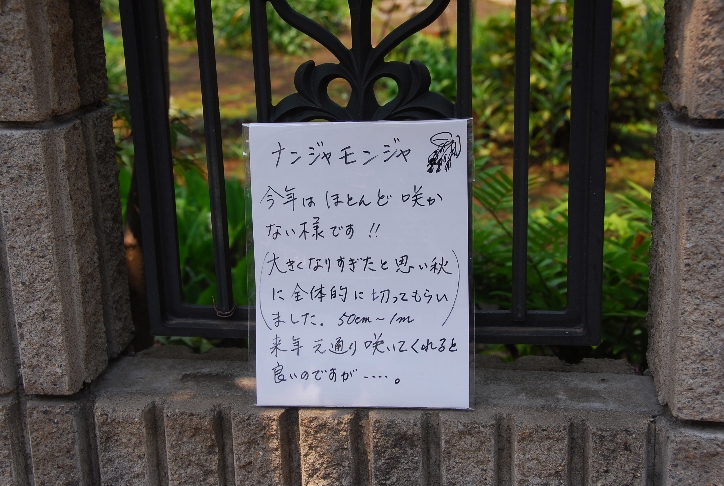 ナンジャモンジャ
今年は ほとんど 咲か
ない様です !!
(大きくなりすぎたと思い秋
に全体的に切ってもらい
ました。 50cm~1m)
来年 元通り 咲いてくれると
良いのですが‥‥。